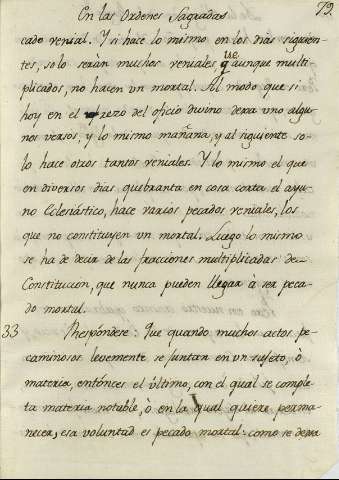 En las Ordenes Sagradas
79.
cado venial. Y si hace lo mismo en los dias siguien-
tes, solo serán muchos veniales que aunque multi
plicados, no hacen un mortal. Al modo que si
hoy en el rezo del oficio divino dexa uno algu-
nos versos, y lo mismo mañana, y al siguiente so-
lo hace otros tantos veniales. Y lo mismo el que
en diversos dias quebranta en cosa corta el ayu-
no Eclesiástico, hace varios pecados veniales, los
que no constituyen un mortal. Luego lo mismo
se ha de decir de las fracciones multiplicadas de
Constitucion, que nunca pueden llegar à ser peca-
do mortal.
33 Respóndese: Que quando muchos actos pe-
caminosos levemente se juntan en un sujeto, ò
materia, entónces el último, con el qual se comple-
ta materia notable, ò en la qual quiere perma-
necer, esa voluntad es pecado mortal: como se dexa